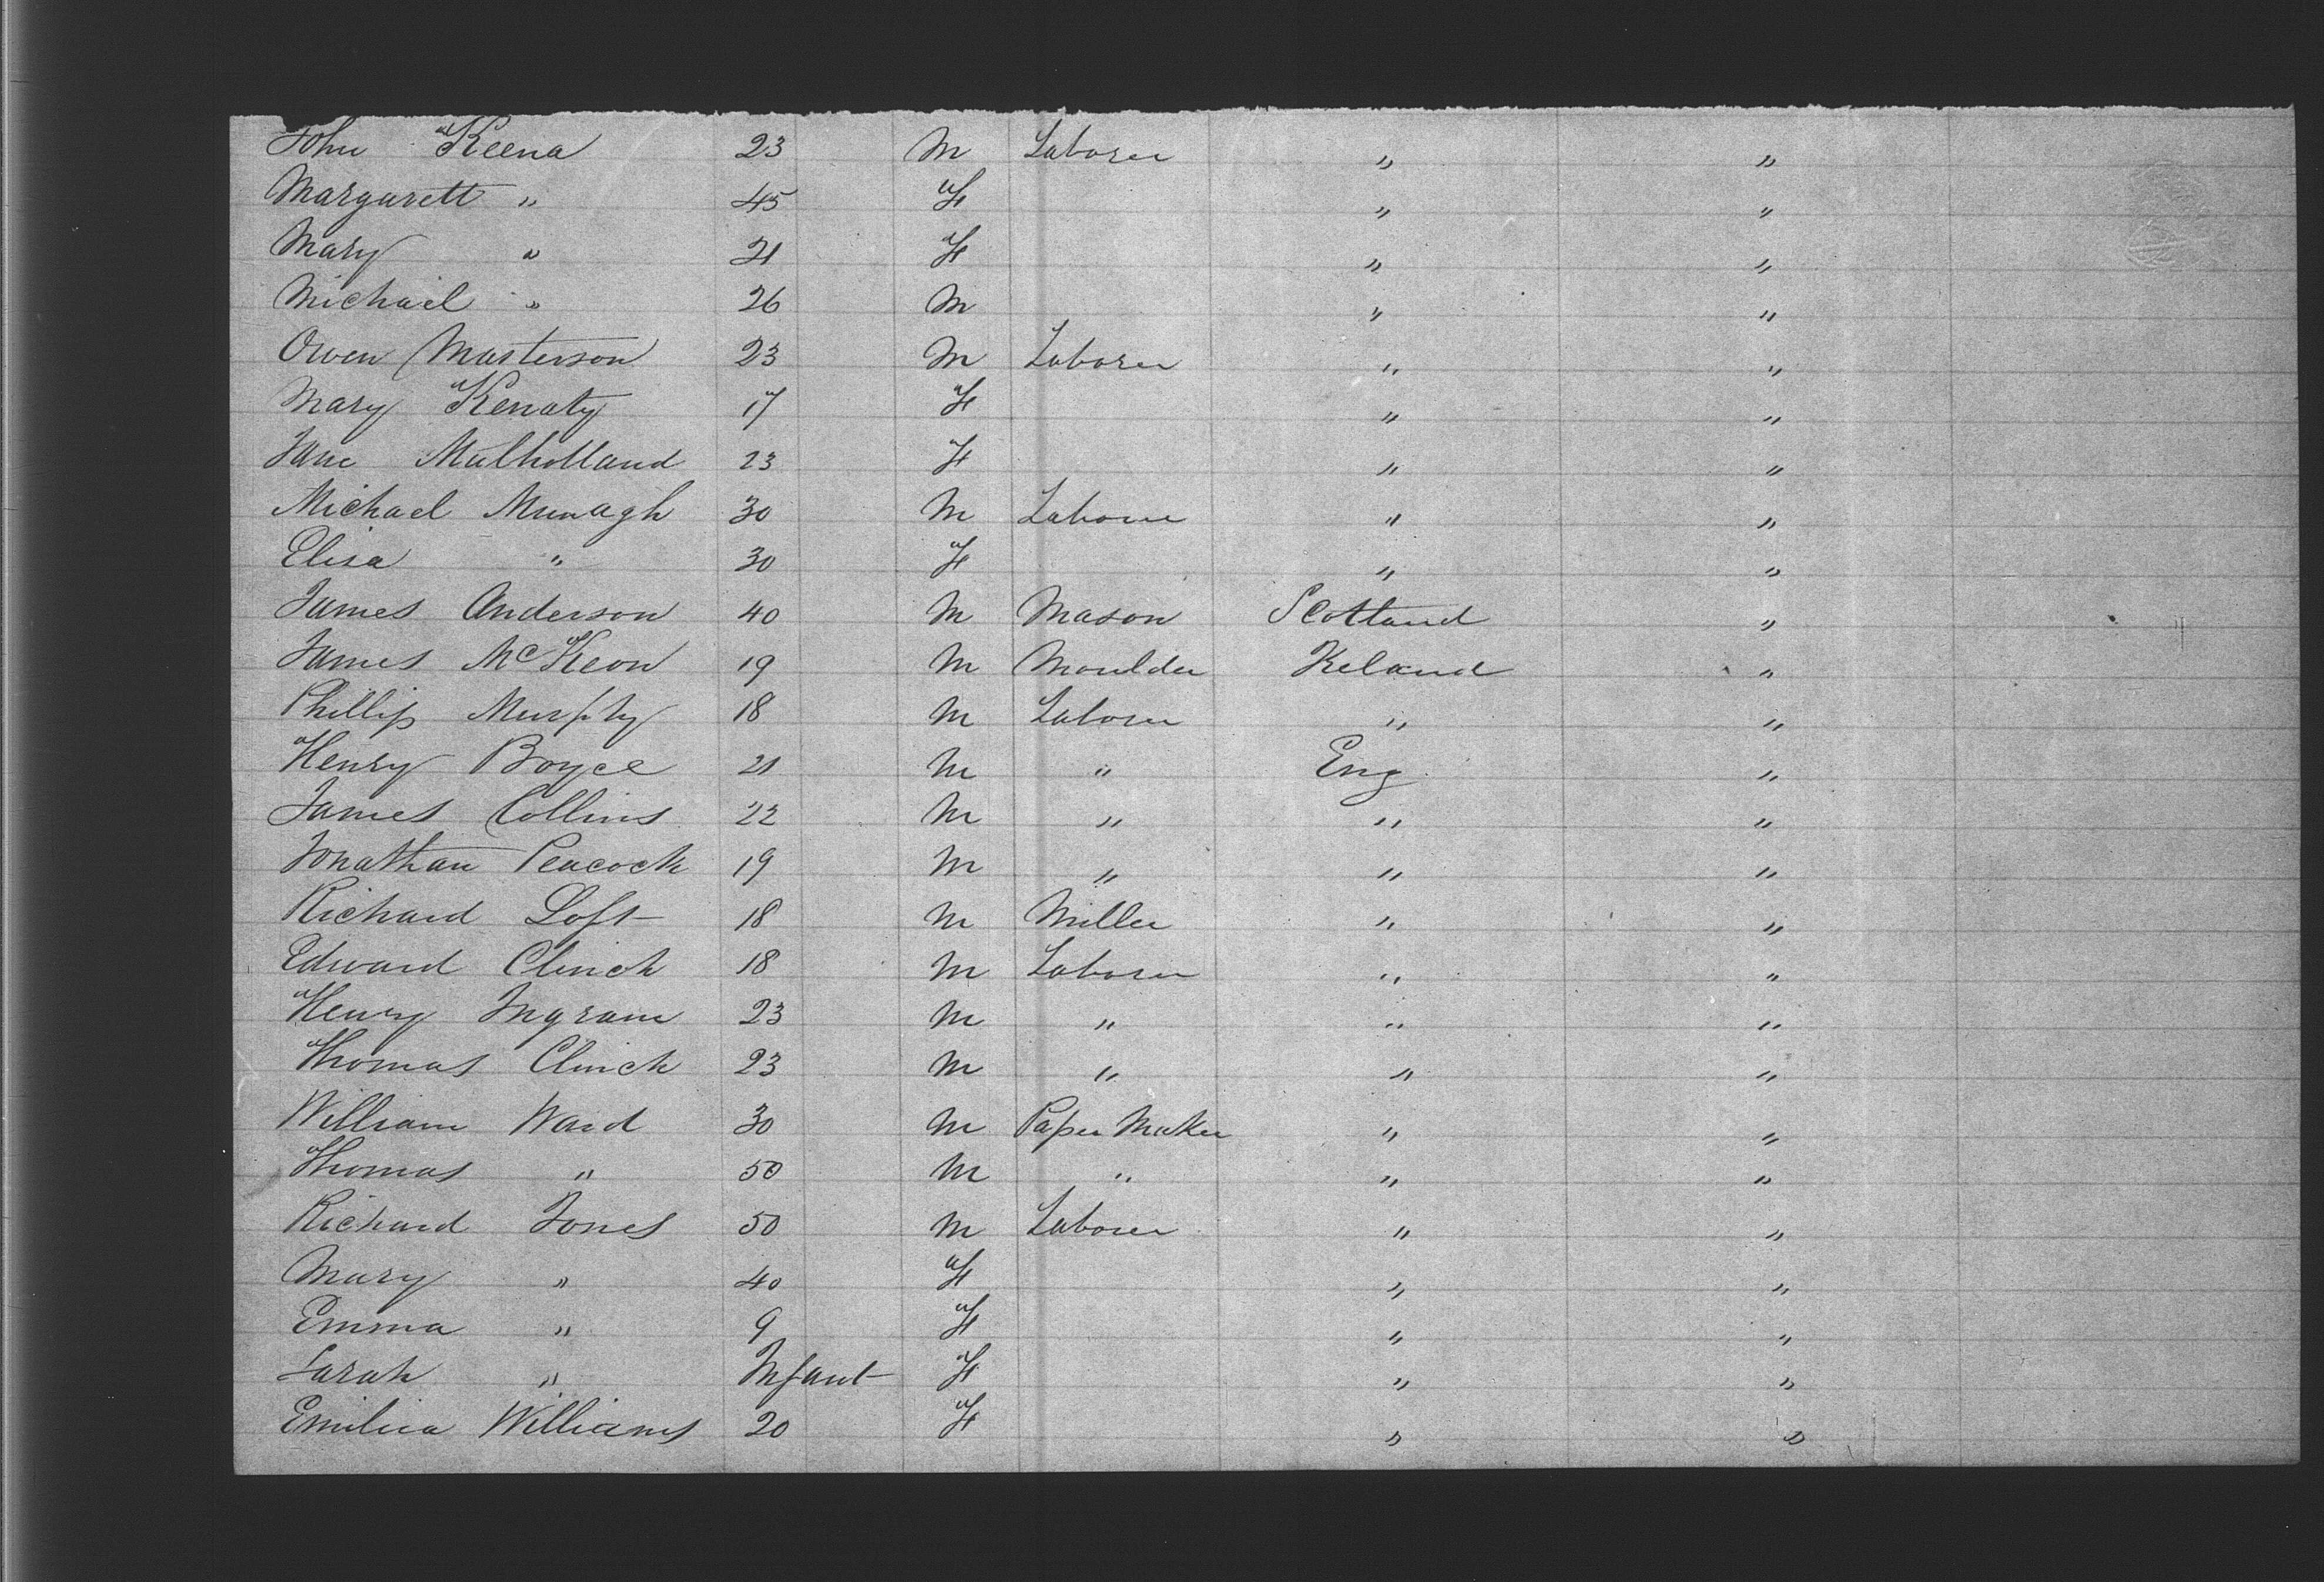 John Keena 23 M Laborer " "
Margarett " 45 F " "
Mary " 21 F " "
Michael " 26 M " "
Owen Masterson 23 M Laborer " "
Mary Kenaty 17 F " "
Jane Mulholland 23 F " "
Michael Munagh 30 M Laborer " "
Elisa " 30 F " "
James Anderson 40 M Mason Scotland "
James McKeon 19 M Moulder Ireland "
Phillip Murphy 18 M Laborer " "
Henry Boyce 21 M " Eng "
James Collins 22 M " " "
Jonathan Peacock 19 M " " "
Richard Loft 18 M Miller " "
Edward Clinch 18 M Laborer " "
Henry Ingram 23 M " " "
Thomas Clinch 23 M " " "
William Ward 30 M Paper Maker " "
Thomas " 50 M " " "
Richard Jones 50 M Laborer " "
Mary " 40 F " "
Emma " 9 F " "
Sarah " Infant F " "
Emilia Williams 20 F " "